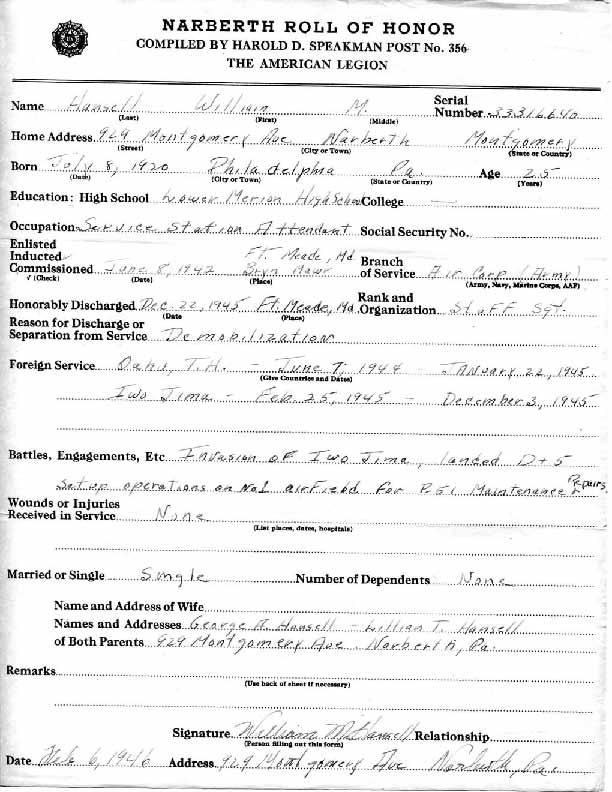 NARBERTH ROLL OF HONOR
COMPILED BY HAROLD D. SPEAKMAN POST No. 356
THE AMERICAN LEGION
Name Hansell William M. Serial Number 33316640
(Last) (First) (Middle)
Home Address 929 Montgomery Ave Narberth Montgomery
(Street) (City or Town) (State or Country)
Born July 8, 1920 Philadelphia Pa. Age 25
(Date) (City or Town) (State or Country) (Years)
Education: High School Lower Merion High School College —
Occupation Service Station Attendant Social Security No.
Enlisted
Inducted Ft. Meade, Md Branch
Commissioned June 8, 1942 Bryn Mawr of Service Air Corp (Army)
√ (Check) (Date) (Place) (Army, Navy, Marine Corps, AAF)
Honorably Discharged Dec 22, 1945 Ft. Meade, Md Rank and Organization Staff Sgt.
(Date (Place)
Reason for Discharge or
Separation from Service Demobilization
Foreign Service Oahu, T.H. - June 7, 1944 - January 22, 1945
(Give Countries and Dates)
Iwo Jima - Feb 25, 1945 - December 3, 1945
Battles, Engagements, Etc Invasion of Iwo Jima, landed D+5
Set up operations on No1 airfield for P.51 Maintenance & Repairs
Wounds or Injuries
Received in Service None
(List places, dates, hospitals)
Married or Single Single Number of Dependents None
Name and Address of Wife
Names and Addresses George A. Hansell - Lillian T. Hansell
of Both Parents 929 Montgomery Ave. Narberth, Pa.
Remarks
(Use back of sheet if necessary)
Signature William M Hansell Relationship
(Person filling out this form)
Date Feb 6, 1946 Address 929 Montgomery Ave Narberth, Pa